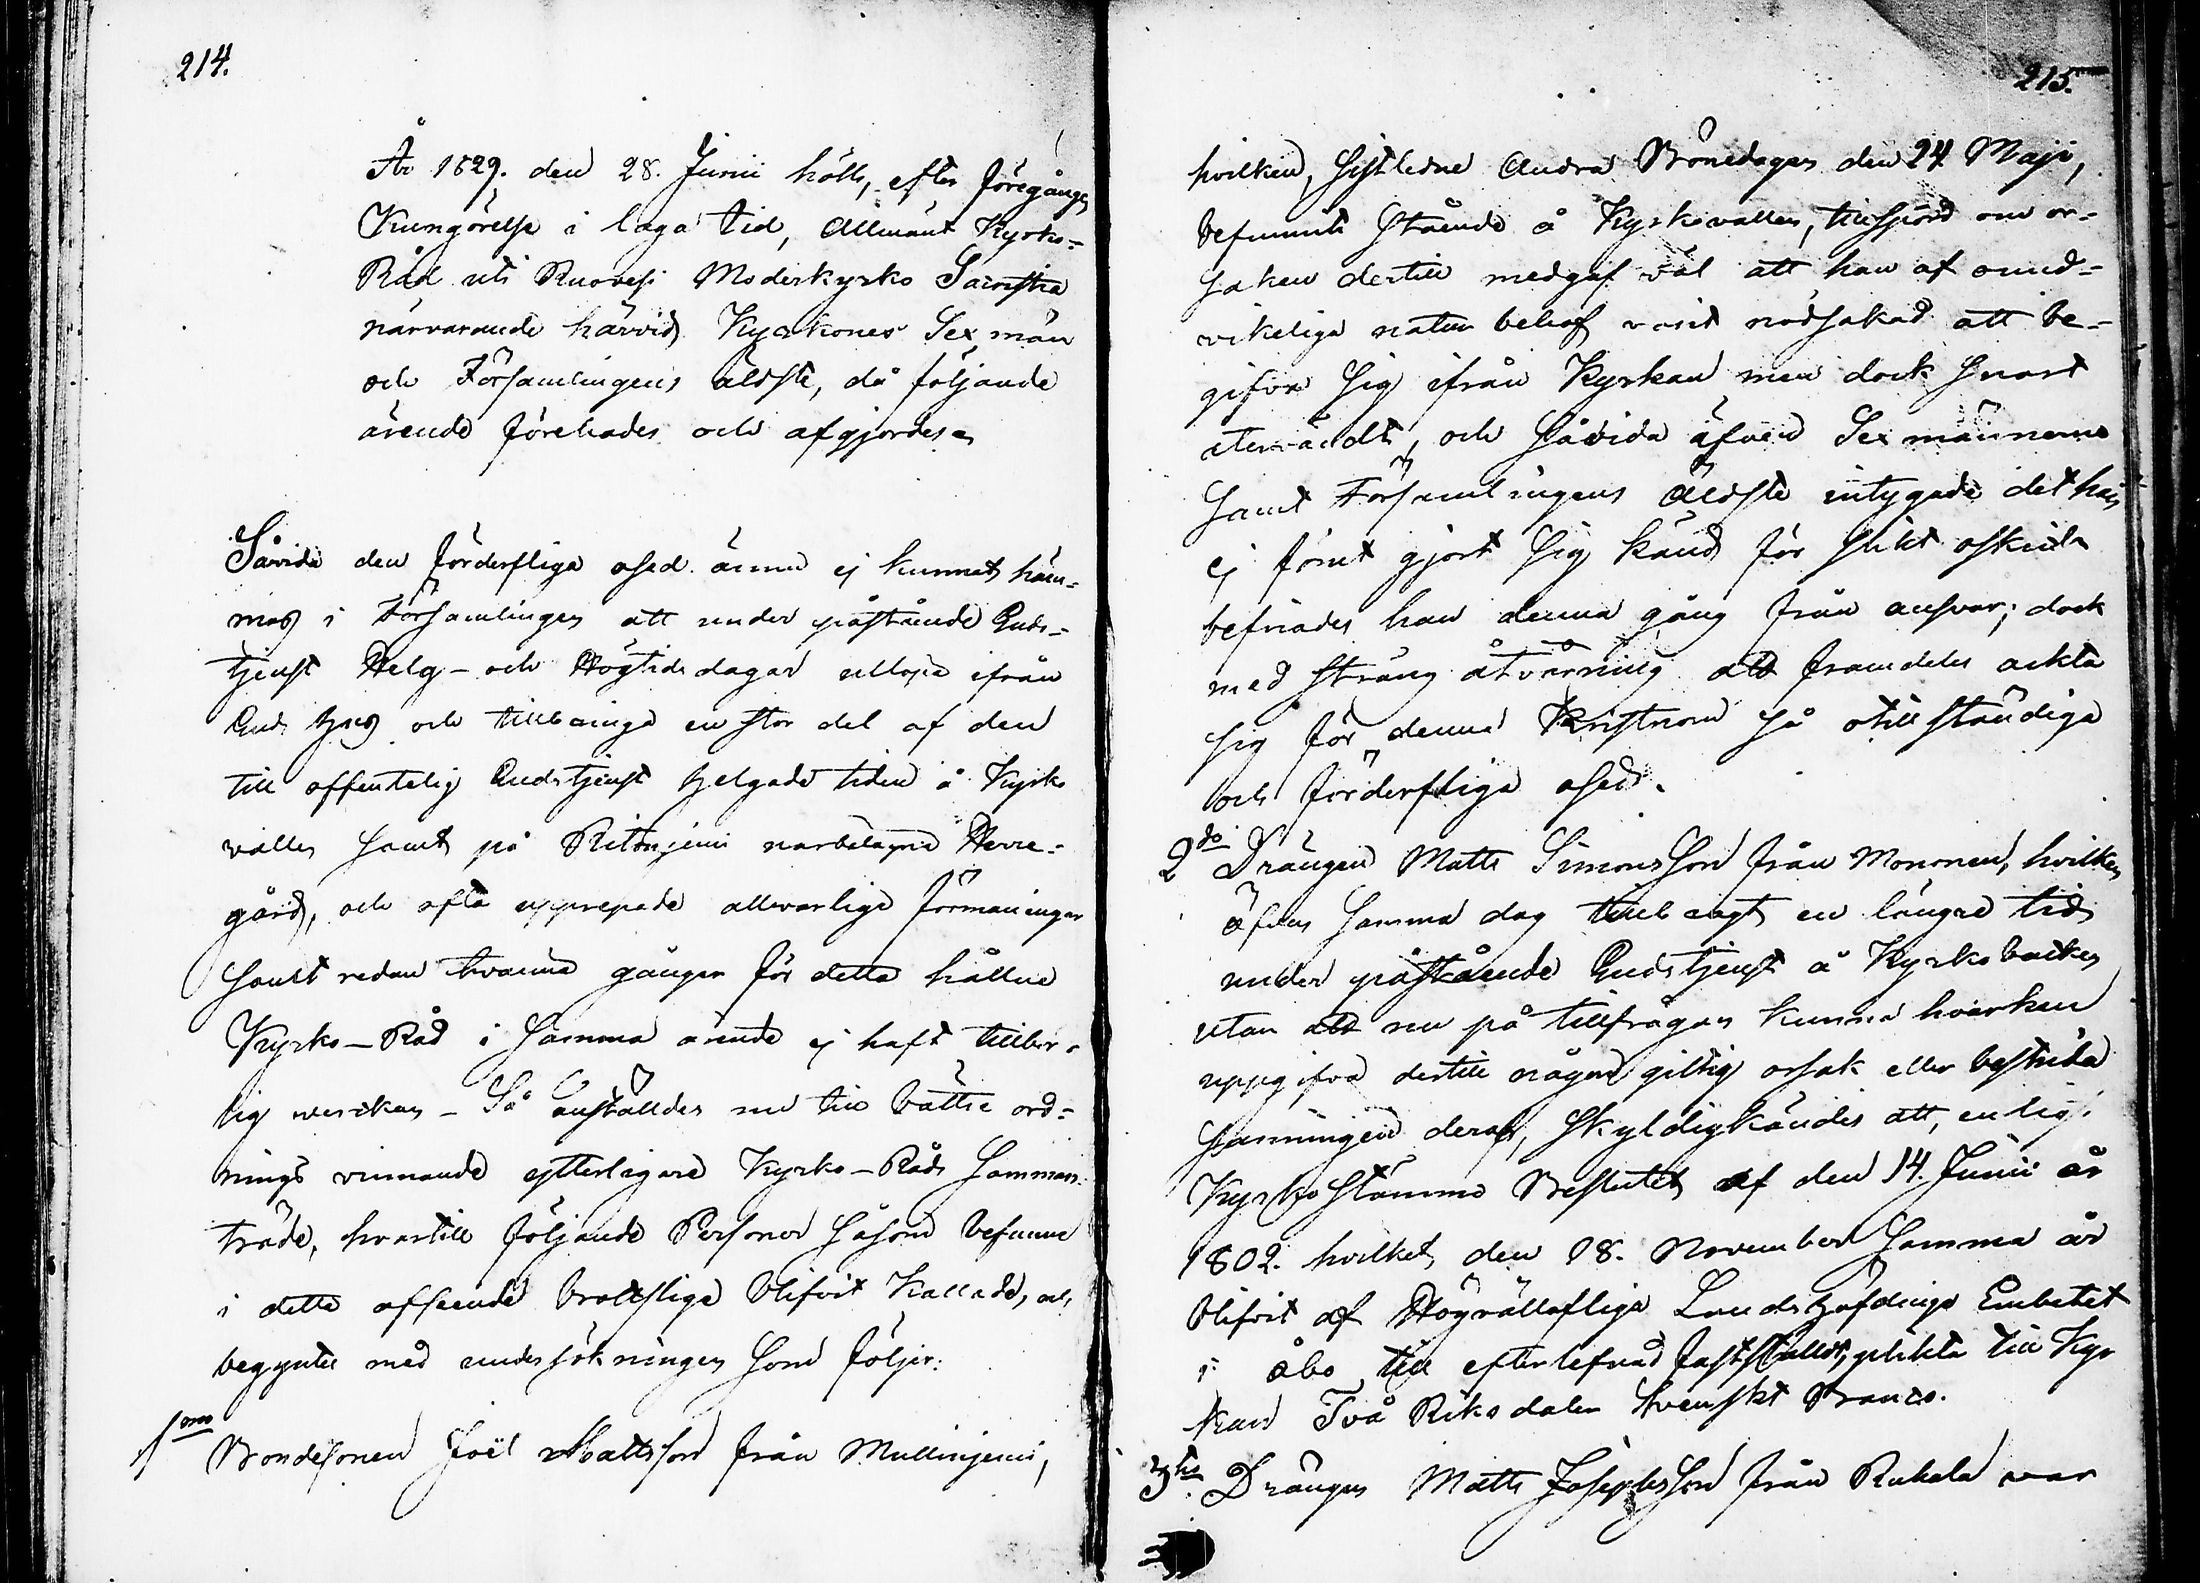 214.
År 1829. den 28. Junii hölls, efter föregången
Kungörelse i laga tid, Allmänt Kyrko-
Råd uti Ruovesi Moderkyrko Sacristia
närvarande härvid Kyrkones Sex män
och Församlingens äldste, då följande
ärende förehades och afgjordes.
Såvida den förderfliga osed ännu ej kunnat häm-
mas i Församlingen att under påstående Guds-
tjenst Helg- och Högtids dagar utlopa ifrån
Guds hus och tillbringa en stor del af den
till offentelig Gudstjenst helgade tiden å Kyrko
vallen samt på Ritoniemi närbelägna Herre-
gård, och ofta upprepade allvarliga förmaningar
samt redan tvänne gånger för detta hållne
Kyrko-Råd i samma ärende ej haft tillbör-
lig verckan - Så anställdes nu till bättre ord-
nings vinnande ytterligare Kyrko-Råds Samman-
träde, hvartill följande Personer såsom befunne
i detta afseende brottslige blifvit Kallade, och
begyntes med undersökningen som följer:
1mo Bondesonen Joël Mattsson från Mullinjemi,
215.
hvilken, sistledne Andra Bönedagen den 24 Maji,
befunnits stående å Kyrkovallen, tillspord om or-
saken dertill medgaf väl att han af ound-
vikeliga natur behof varit nödsakad att be-
gifva sig ifrån Kyrkan men dock snart
återvändt, och såvida äfven Sexmännerne
samt Församlingens Äldste intygade det han
ej förut gjort sig känd för slikt oskick
befriades han denna gång från ansvar; dock
med sträng åtvarning att framdeles ackta
sig för denna Kristnom så otillständiga
och förderfliga osed.
2do Drängen Matts Simonsson från Mononen, hvilken
äfven samma dag tillbragt en längre tid
under påstående Gudstjenst å Kyrkobacken
utan att nu på tillfrågan kunna hvarken
uppgifva dertill någon giltig orsak eller bestrida
sanningen deraf, skyldigkändes att, enligt
Kyrko Stämmo Beslutet af den 14. Junii år
1802. hvilket den 18. November samma år
blifvit af Högvällofliga Landshöfdinge Embetet
i Åbo till efterlefnad fastställdt, plikta till Kyr
kan Två Riksdaler Svenskt Banco.
3tio Drängen Matts Josephsson från Ruhala var